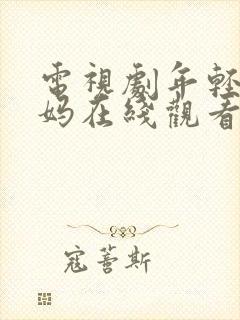 電視劇年輕
媽在綫觀看
寇蕾斯